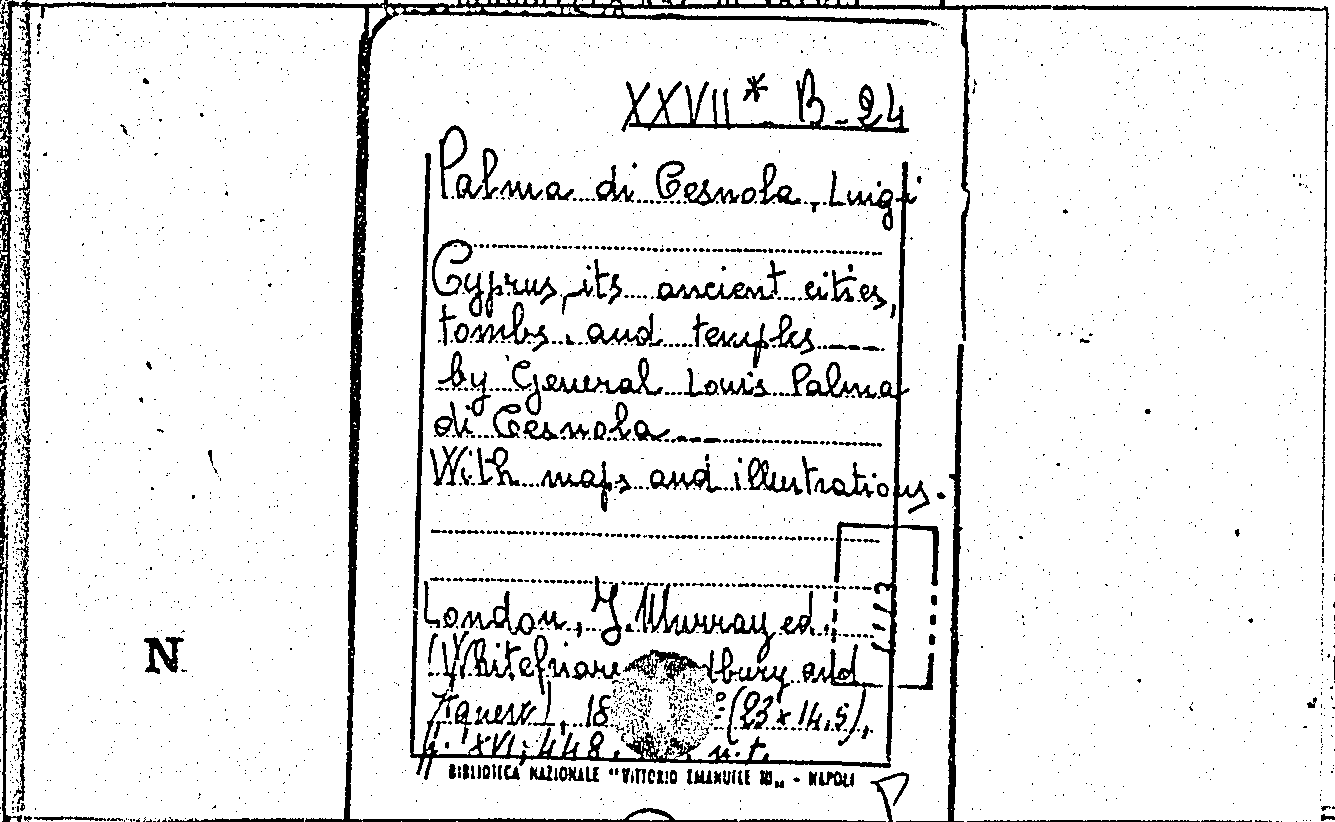 XXVII* B-24
Palma di Cesnola, Luigi
Cyprus, its ancient cities,
tombs, and temples
by General Louis Palma
di Cesnola
With maps and illustrations.
London, J. Murray ed.
(Whitefriars bury and
Agnew), 18 (23x14.5),
pp. XVI, 448, n.t.
BIBLIOTECA NAZIONALE "VITTORIO EMANUELE III" - NAPOLI
N